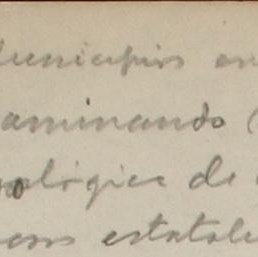 Municipios en
aminando (
ológica de
estatale